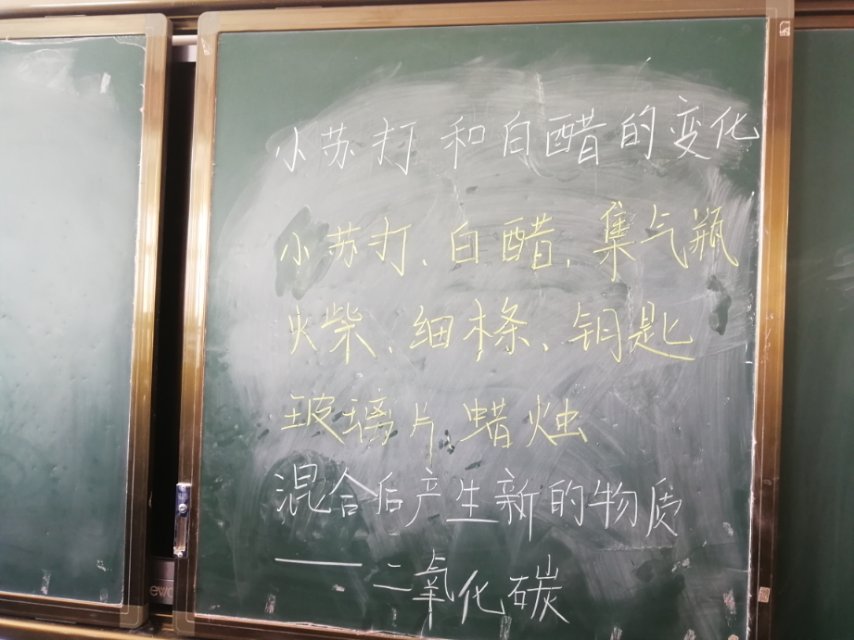 小苏打和白醋的变化
小苏打、白醋、集气瓶
火柴、细木条、钥匙
玻璃片、蜡烛
混合后产生新的物质
——二氧化碳